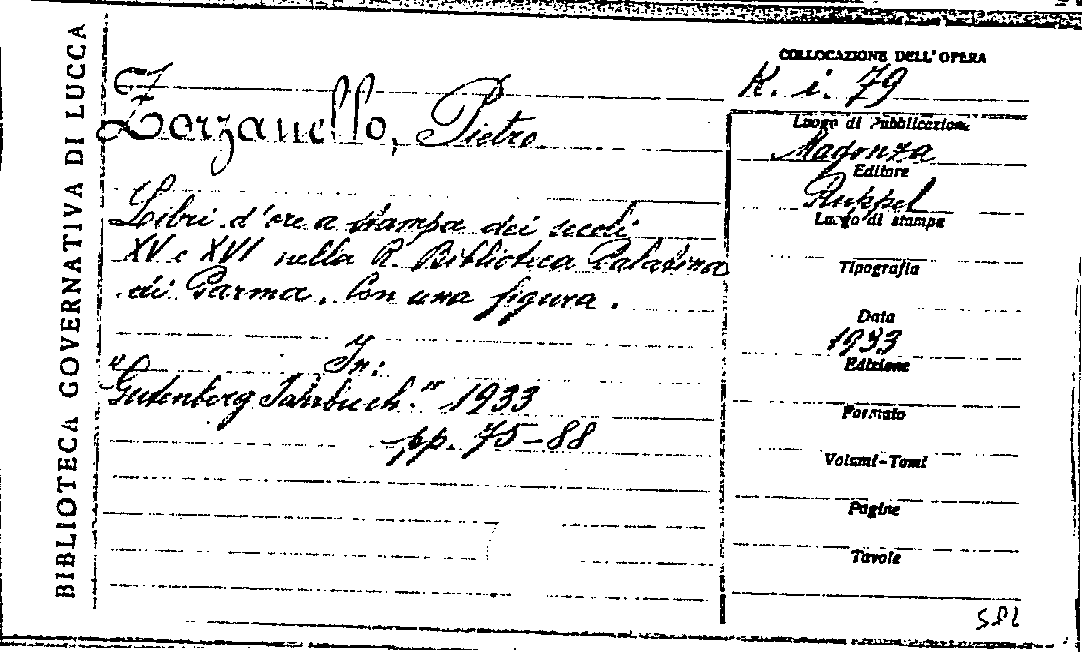 BIBLIOTECA GOVERNATIVA DI LUCCA
Z
Zorzanello, Pietro
Libri d'ore a stampa dei secoli
XV e XVI nella R. Biblioteca Palatina
di Parma. Con una figura.
In:
"Gutenberg Jahrbuch" 1933
pp. 75-88
COLLOCAZIONE DELL'OPERA
K. i. 79
Luogo di Pubblicazione
Magonza
Editore
Ruppel
Luogo di stampa
Tipografia
Data
1933
Edizione
Formato
Volumi-Tomi
Pagine
Tavole